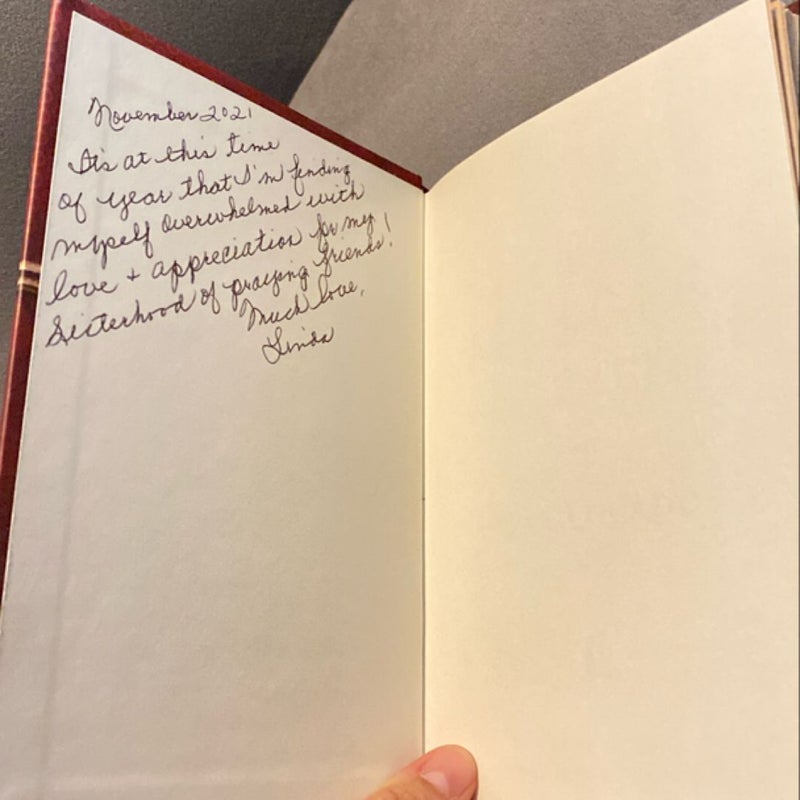 November 2021
It's at this time
of year that I'm finding
myself overwhelmed with
love + appreciation for my
Sisterhood of praying friends!
Much love,
Linda